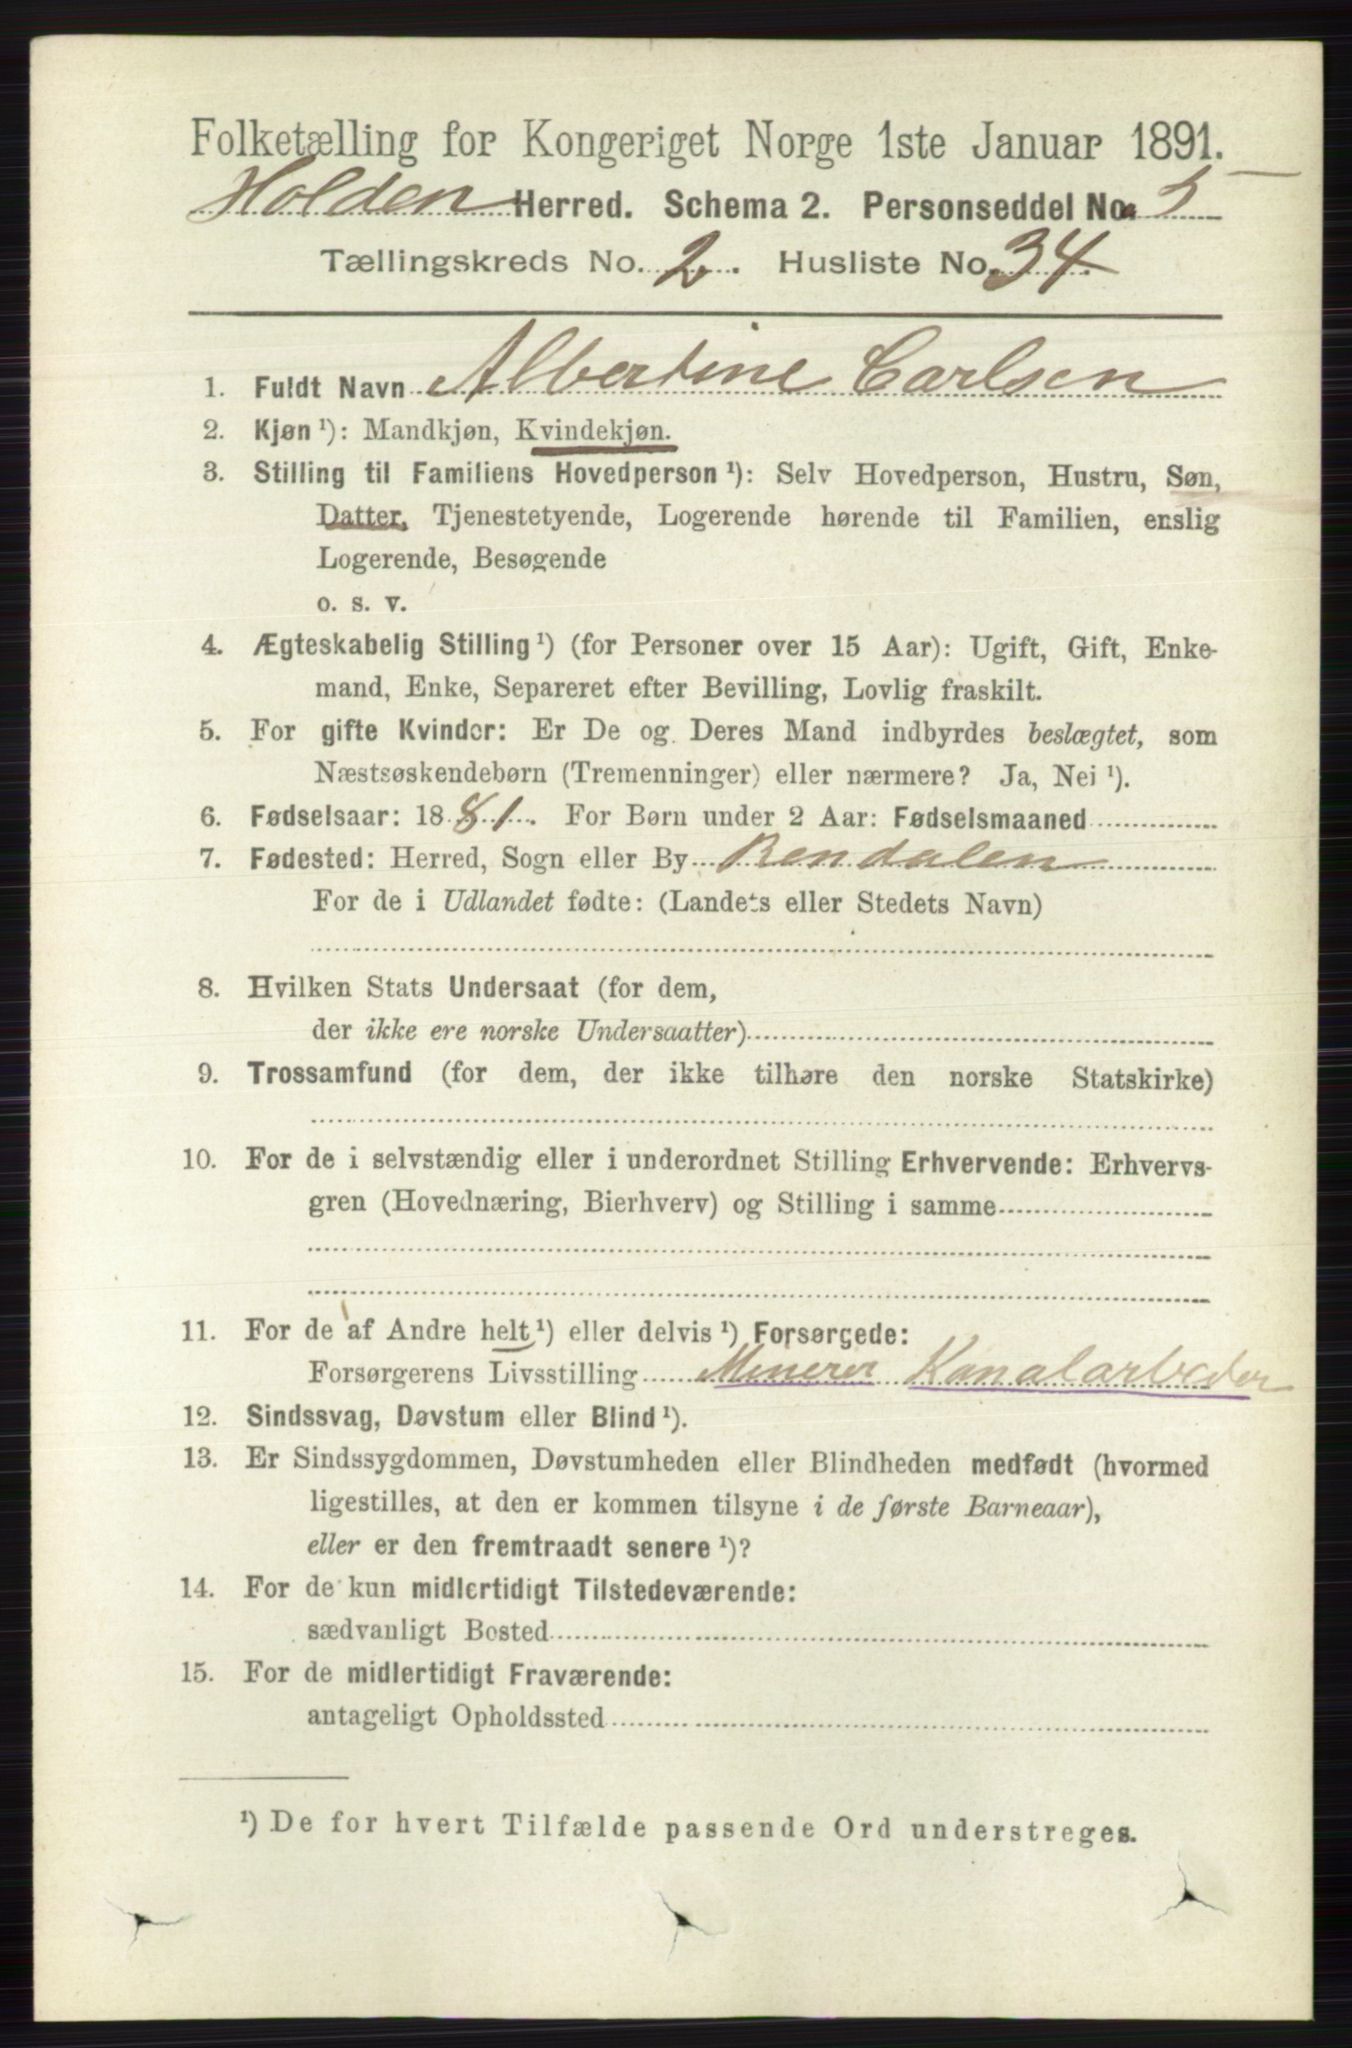 Folketælling for Kongeriget Norge 1ste Januar 1891.
Holden Herred. Schema 2. Personseddel No. 5
Tællingskreds No. 2. Husliste No. 34.
1. Fuldt Navn Albertine Carlsen
2. Kjøn ¹): Mandkjøn, Kvindekjøn.
3. Stilling til Familiens Hovedperson ¹): Selv Hovedperson, Hustru, Søn,
Datter, Tjenestetyende, Logerende hørende til Familien, enslig
Logerende, Besøgende
o. s. v.
4. Ægteskabelig Stilling ¹) (for Personer over 15 Aar): Ugift, Gift, Enke-
mand, Enke, Separeret efter Bevilling, Lovlig fraskilt.
5. For gifte Kvinder: Er De og Deres Mand indbyrdes beslægtet, som
Næstsøskendebørn (Tremenninger) eller nærmere? Ja, Nei ¹).
6. Fødselsaar: 1881. For Børn under 2 Aar: Fødselsmaaned
7. Fødested: Herred, Sogn eller By Rendalen
For de i Udlandet fødte: (Landets eller Stedets Navn)
8. Hvilken Stats Undersaat (for dem,
der ikke ere norske Undersaatter)
9. Trossamfund (for dem, der ikke tilhøre den norske Statskirke)
10. For de i selvstændig eller i underordnet Stilling Erhvervende: Erhvervs-
gren (Hovednæring, Bierhverv) og Stilling i samme
11. For de af Andre helt ¹) eller delvis ¹) Forsørgede:
Forsørgerens Livsstilling Minerer Kanalarbeider
12. Sindssvag, Døvstum eller Blind ¹).
13. Er Sindssygdommen, Døvstumheden eller Blindheden medfødt (hvormed
ligestilles, at den er kommen tilsyne i de første Barneaar),
eller er den fremtraadt senere ¹)?
14. For de kun midlertidigt Tilstedeværende:
sædvanligt Bosted
15. For de midlertidigt Fraværende:
antageligt Opholdssted
¹) De for hvert Tilfælde passende Ord understreges.